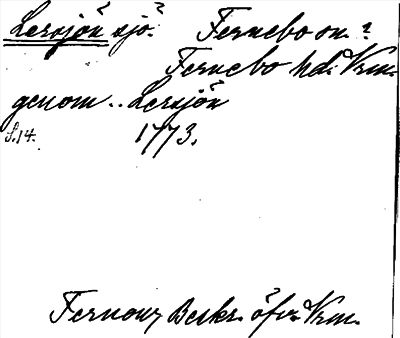 Lersjön sjö. Fernebo sn.?
Fernebo hd. Vrm.
genom .. Lersjön
S. 14. 1773.
Fernow, Beskr. öfv. Vrm.